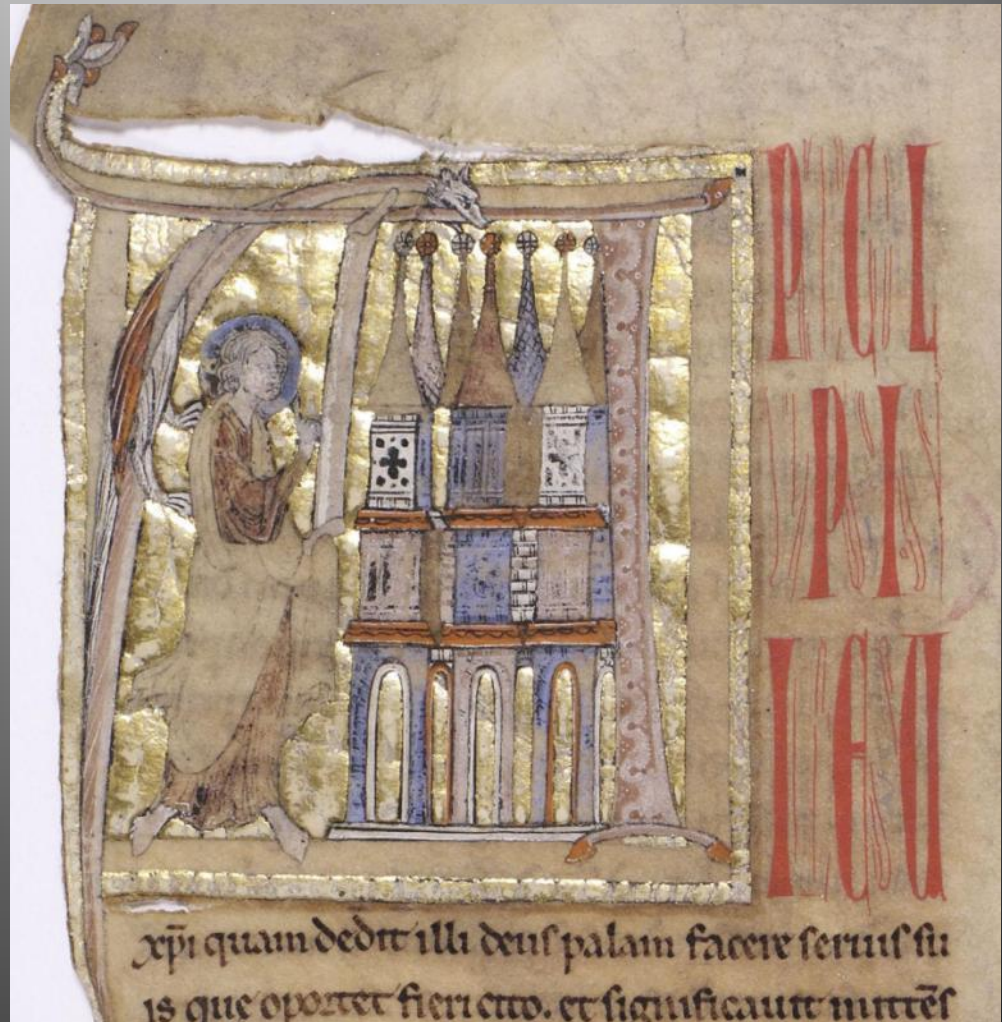 APOCAL
IPSIS
IHESU
xp̄i quam dedit illi deus palam facere seruis su
is que oportet fieri cito. et significauit mittēs